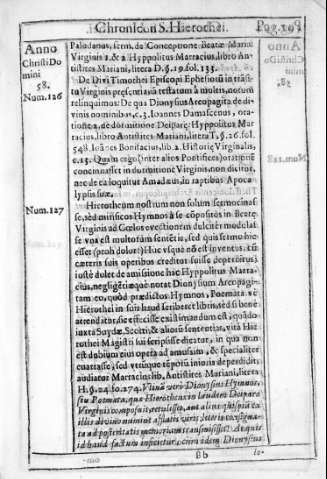 Chronicon S. Hierothei.
Anno
Christi Do
mini
58.
Num. 126
Paludanus, serm. de Conceptione Beatæ Mariæ
Virginis 1. & 2. Hyppolitus Marracius, libro An-
tistites Mariani, litera D. §. 19. fol. 133.
De Divi Timothei Episcopi Ephesiorum in
Virginis præsentia testatum à multis, notum
relinquimus: De qua Dionysius Areopagita de di-
vinis nominibus, c. 3. Ioannes Damascenus, ora-
tione 2. de dormitione Deiparæ: Hyppolitus Mar-
racius, libro Antistites Mariani, litera T. §. 26. fol.
548. Ioannes Bonifacius, lib. 2. Historiæ Virginalis,
c. 13. Quam ergo (inter alios Pontifices) orationem
concinasset in dormitione Virginis, non dicitur,
nec de ea loquitur Amadeus, in raptibus Apoca-
lypsis suæ.
Num. 127
Hierotheum nostrum non solum sermocinas-
se, sed mirificos Hymnos à se cōpositos in Beatæ
Virginis ad Cœlos evectionem dulciter modulas-
se vox est multorum sentētia, sed quis sermo hic
esset (proh dolor!) Huc usque nō est inventus. (um
cæteris suis operibus creditur fuisse deperditus)
iustè dolet de amissione hac Hyppolitus Marra-
cius, negligētiæque notat Dionysium Areopagi-
tam eo, quòd prædictos Hymnos, Poemata vè
Hierothei in suis haud scriberet libris, sed si benè
attendatur, sic effecisse existimandum est, quādo
iuxta Suydæ, Scotti, & aliorū sententias, vitā Hie-
rothei Magistri sui scripsisse dicatur, in qua non
est dubium eius opera ad amussim, & specialiter
enarrasse, sed utrúque tēporū iniuria deperditū.
audiatur Marracius lib. Antistites Mariani, litera
H. §. 24. fo. 274. Vtinā verò Dionysius Hymnos,
seu Poemata, quæ Hierotheus in laudem Deiparæ
Virginis composuit, retulisset, aut alia
illic divino numine afflatus
ta ad posteritatis memoriam transmisisset: At quia
id haud factum inficietur, cùm idem Dionysius
Bb